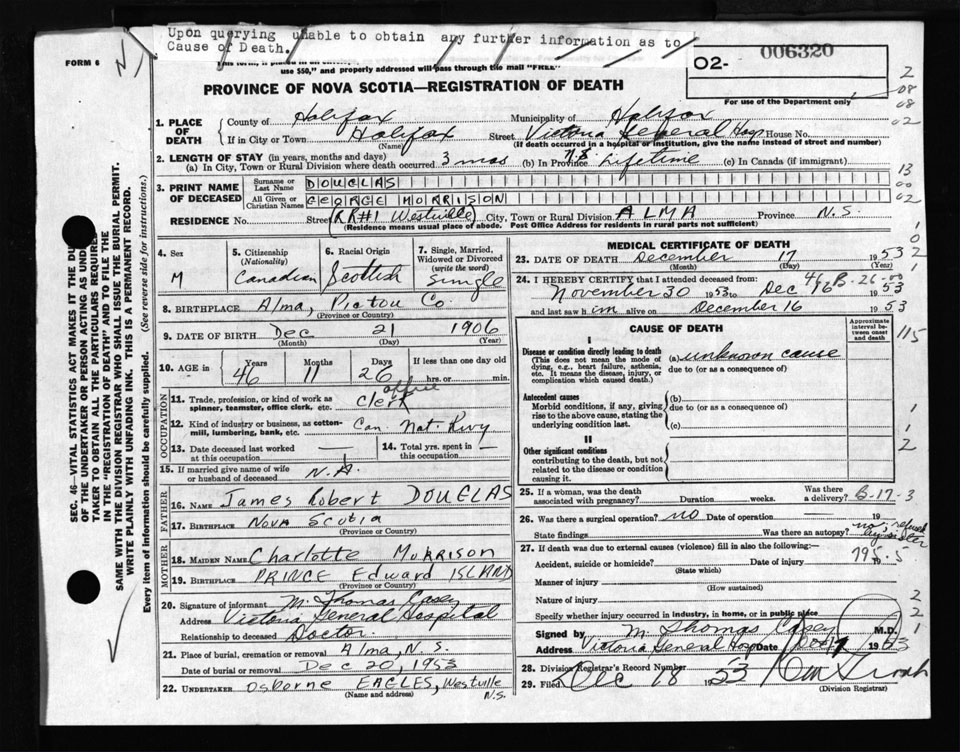 Upon querying unable to obtain any further information as to
Cause of Death.
FORM 6
use $50," and properly addressed will pass through the mail "FREE"
O2-
006320
For use of the Department only
PROVINCE OF NOVA SCOTIA—REGISTRATION OF DEATH
1. PLACE OF DEATH
County of Halifax Municipality of Halifax
If in City or Town Halifax Street Victoria General Hosp House No.
(Name) (If death occurred in a hospital or institution, give the name instead of street and number)
2. LENGTH OF STAY (in years, months and days)
(a) In City, Town or Rural Division where death occurred 3 mos (b) In Province N.S. Lifetime (c) In Canada (if immigrant)
3. PRINT NAME OF DECEASED
Surname or Last Name DOUGLAS
All Given or Christian Names GEORGE MORRISON
RESIDENCE No. Street (RR#1 Westville) City, Town or Rural Division ALMA Province N.S.
(Residence means usual place of abode. Post Office Address for residents in rural parts not sufficient)
4. Sex M
5. Citizenship (Nationality) Canadian
6. Racial Origin Scottish
7. Single, Married, Widowed or Divorced (write the word) Single
8. BIRTHPLACE Alma, Pictou Co.
(Province or Country)
9. DATE OF BIRTH Dec 21 1906
(Month) (Day) (Year)
10. AGE in Years Months Days If less than one day old
46 11 26 hrs. or min.
OCCUPATION
11. Trade, profession, or kind of work as spinner, teamster, office clerk, etc. office Clerk
12. Kind of industry or business, as cotton-mill, lumbering, bank, etc. Can Nat. Rwy
13. Date deceased last worked at this occupation —
14. Total yrs. spent in this occupation —
15. If married give name of wife or husband of deceased N.A.
FATHER
16. NAME James Robert DOUGLAS
17. BIRTHPLACE NOVA SCOTIA
(Province or Country)
MOTHER
18. MAIDEN NAME Charlotte MORRISON
19. BIRTHPLACE PRINCE Edward ISLAND
(Province or Country)
20. Signature of informant M. Thomas Casey
Address Victoria General Hospital
Relationship to deceased Doctor.
21. Place of burial, cremation or removal Alma, N.S.
Date of burial or removal Dec 20, 1953
22. UNDERTAKER Osborne EAGLES, Westville N.S.
(Name and address)
MEDICAL CERTIFICATE OF DEATH
23. DATE OF DEATH December 17 1953
(Month) (Day) (Year)
24. I HEREBY CERTIFY that I attended deceased from:
November 30 1953 to Dec 16 1953
and last saw him alive on December 16 1953
CAUSE OF DEATH
Approximate interval between onset and death
I
Disease or condition directly leading to death
(This does not mean the mode of dying, e.g., heart failure, asthenia, etc. It means the disease, injury, or complication which caused death.)
(a) unknown cause
due to (or as a consequence of)
Antecedent causes
Morbid conditions, if any, giving rise to the above cause, stating the underlying condition last.
(b)
due to (or as a consequence of)
(c)
II
Other significant conditions
contributing to the death, but not related to the disease or condition causing it.
25. If a woman, was the death associated with pregnancy? Duration weeks. Was there a delivery?
B-17-3
26. Was there a surgical operation? no Date of operation — 19
State findings Was there an autopsy? no, refused by sister
27. If death was due to external causes (violence) fill in also the following:—
Accident, suicide or homicide? Date of injury 19
(State which)
795.5
Manner of injury
(How sustained)
Nature of injury
Specify whether injury occurred in industry, in home, or in public place
Signed by M. Thomas Casey M.D.
Address Victoria General Hosp Date Dec 17 1953
28. Division Registrar's Record Number
29. Filed Dec 18 1953
(Division Registrar)
SEC. 46—VITAL STATISTICS ACT MAKES IT THE DU
OF THE UNDERTAKER OR PERSON ACTING AS UND
TAKER TO OBTAIN ALL THE PARTICULARS REQUIRE
IN THE "REGISTRATION OF DEATH" AND TO FILE THE
SAME WITH THE DIVISION REGISTRAR WHO SHALL ISSUE THE BURIAL PERMIT.
WRITE PLAINLY WITH UNFADING INK. THIS IS A PERMANENT RECORD.
Every item of information should be carefully supplied. (See reverse side for instructions.)
2
08
08
02
13
00
02
115
1
1
2
2
2
1